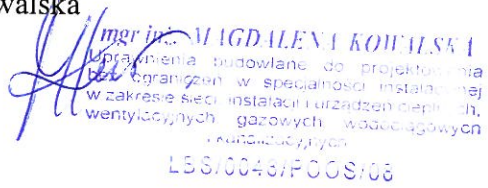 walska
mgr inż. MAGDALENA KOWALSKA
Uprawnienia budowlane do projektowania
bez ograniczeń w specjalności instalacyjnej
w zakresie sieci, instalacji i urządzeń cieplnych,
wentylacyjnych gazowych wodociągowych
i kanalizacyjnych
LBS/0043/POOS/08